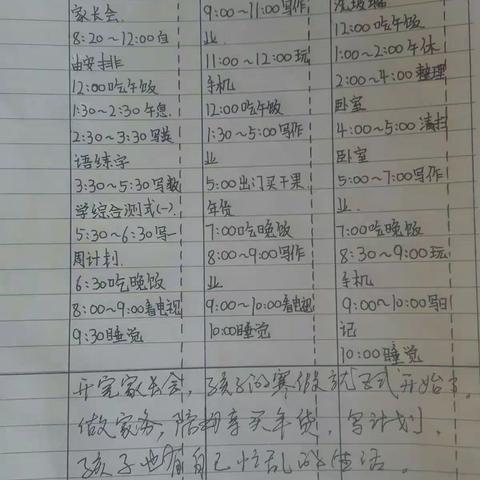 家长会.
8:20~12:00自
由安排
12:00吃午饭
1:30~2:30午息.
2:30~3:30写英
语练字
3:30~5:30写数
学综合测试(一).
5:30~6:30写一
周计划.
6:30吃晚饭
8:00~9:00看电视
9:30睡觉
9:00~11:00写作
业.
11:00~12:00玩
手机
12:00吃午饭
1:30~5:00写作
业
5:00出门买干果,
年货
7:00吃晚饭
8:00~9:00写作
业
9:00~10:00看电视
10:00睡觉
12:00吃午饭
1:00~2:00午休
2:00~4:00整理
卧室
4:00~5:00清扫
卧室
5:00~7:00写作
业.
7:00吃晚饭
8:30~9:00玩
手机
9:00~10:00写日
记
10:00睡觉
开完家长会,孩子的寒假就正式开始了,
做家务,陪母亲买年货,写计划,
孩子也有自己忙乱的生活。